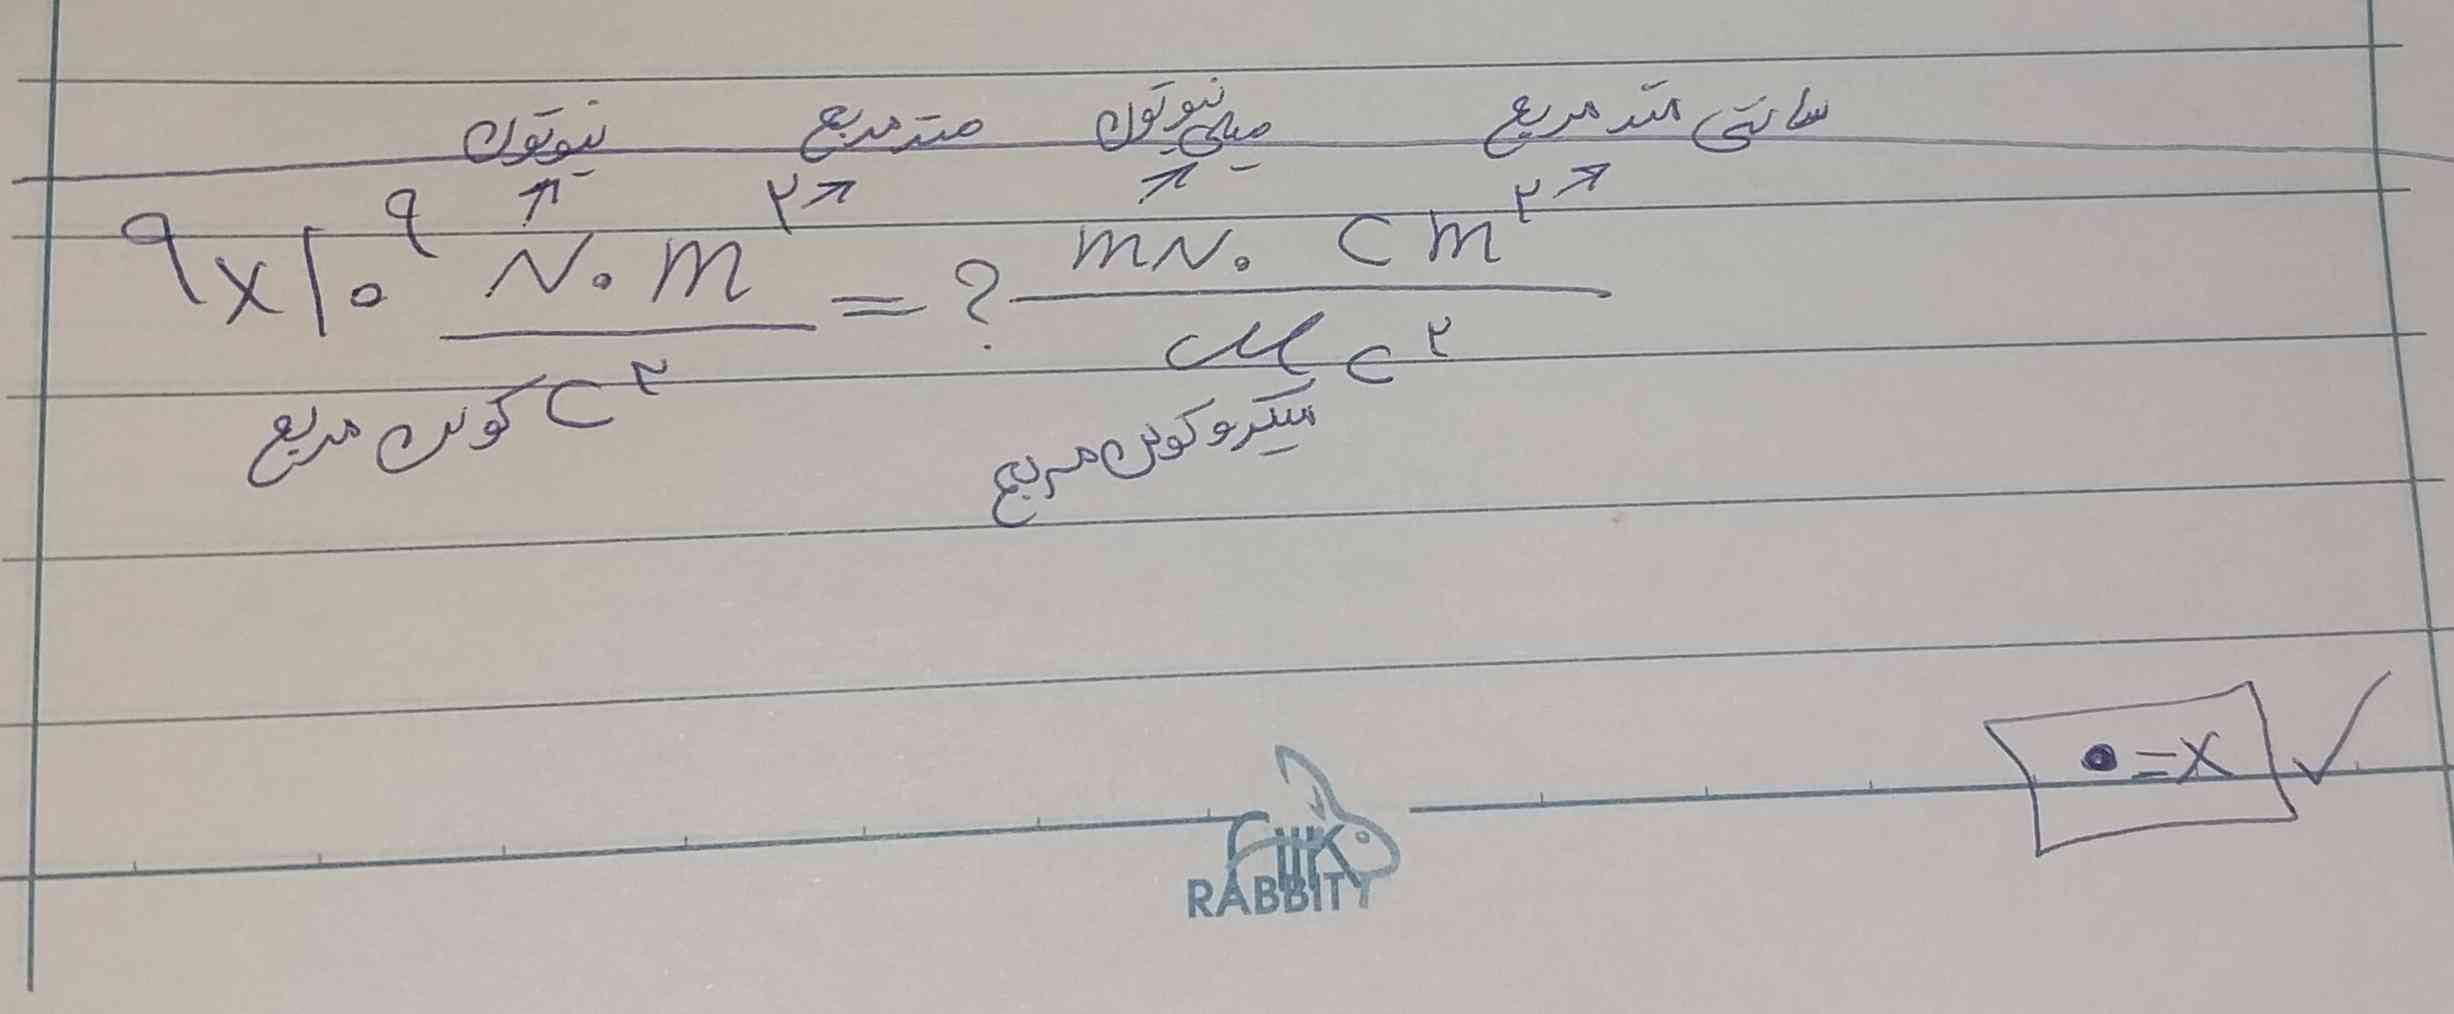 نیوتون مترمربع میلی نیوتون سانتی متر مربع
۹x۱۰^۹ N.m^۲ / C^۲ = ? mN. cm^۲ / μc^۲
کولن مربع میکروکولن مربع
•=x ✓
RABBIT